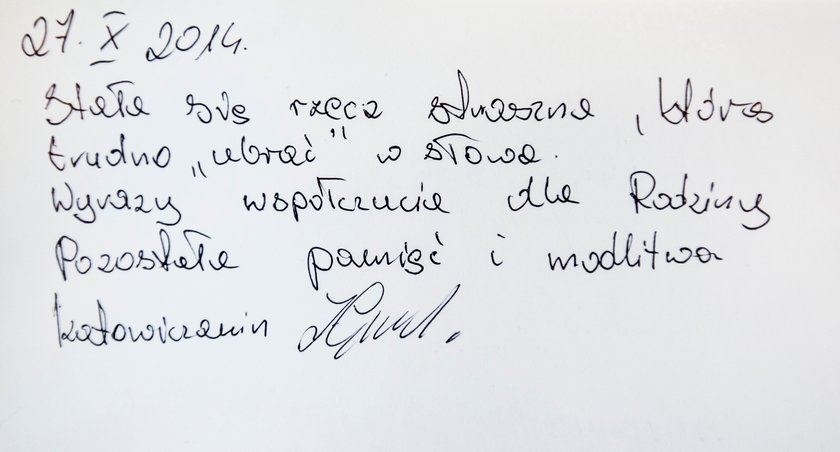 27. X 2014.
Stała się rzecz straszna, którą
trudno „ubrać" w słowa.
Wyrazy współczucia dla Rodziny
Pozostała pamięć i modlitwa
Katowiczanin